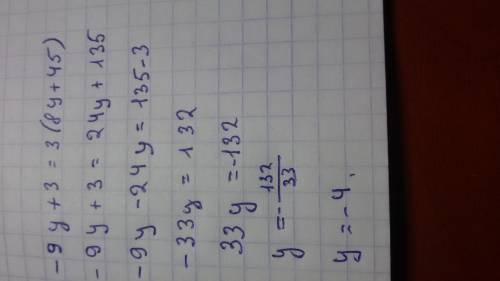 -9y + 3 = 3(8y + 45)
-9y + 3 = 24y + 135
-9y - 24y = 135 - 3
-33y = 132
33y = -132
y = - 132/33
y = -4.